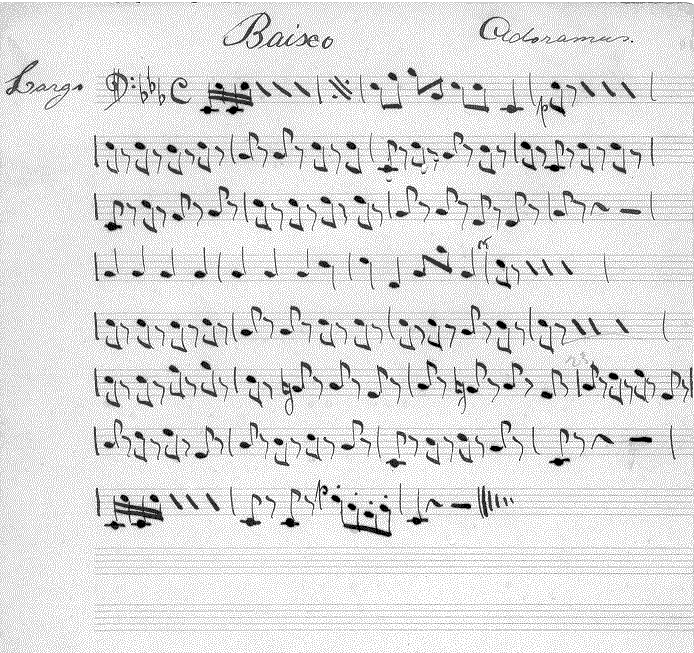 Baiseo Adoramus.
Largo
p
p